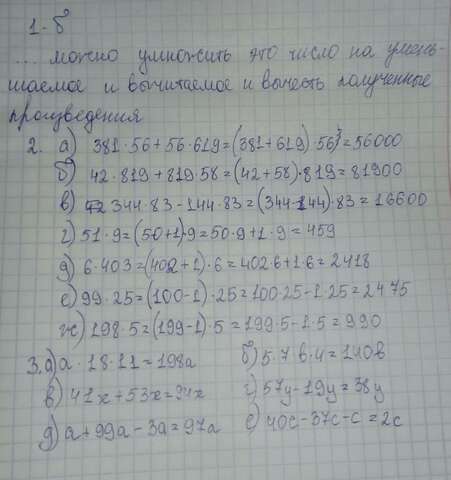 1. б
... можно умножить это число на умень-
шаемое и вычитаемое и вычесть полученные
произведения
2. а) 381·56+56·619=(381+619)·56=56000
б) 42·819+819·58=(42+58)·819=81900
в) 344·83-144·83=(344-144)·83=16600
г) 51·9=(50+1)·9=50·9+1·9=459
д) 6·403=(402+1)·6=402·6+1·6=2418
е) 99·25=(100-1)·25=100·25-1·25=2475
ж) 198·5=(199-1)·5=199·5-1·5=990
3. а) а·18·11=198а б) 5·7·в·4=140в
в) 41х+53х=94х г) 57у-19у=38у
д) а+99а-3а=97а е) 40с-37с-с=2с